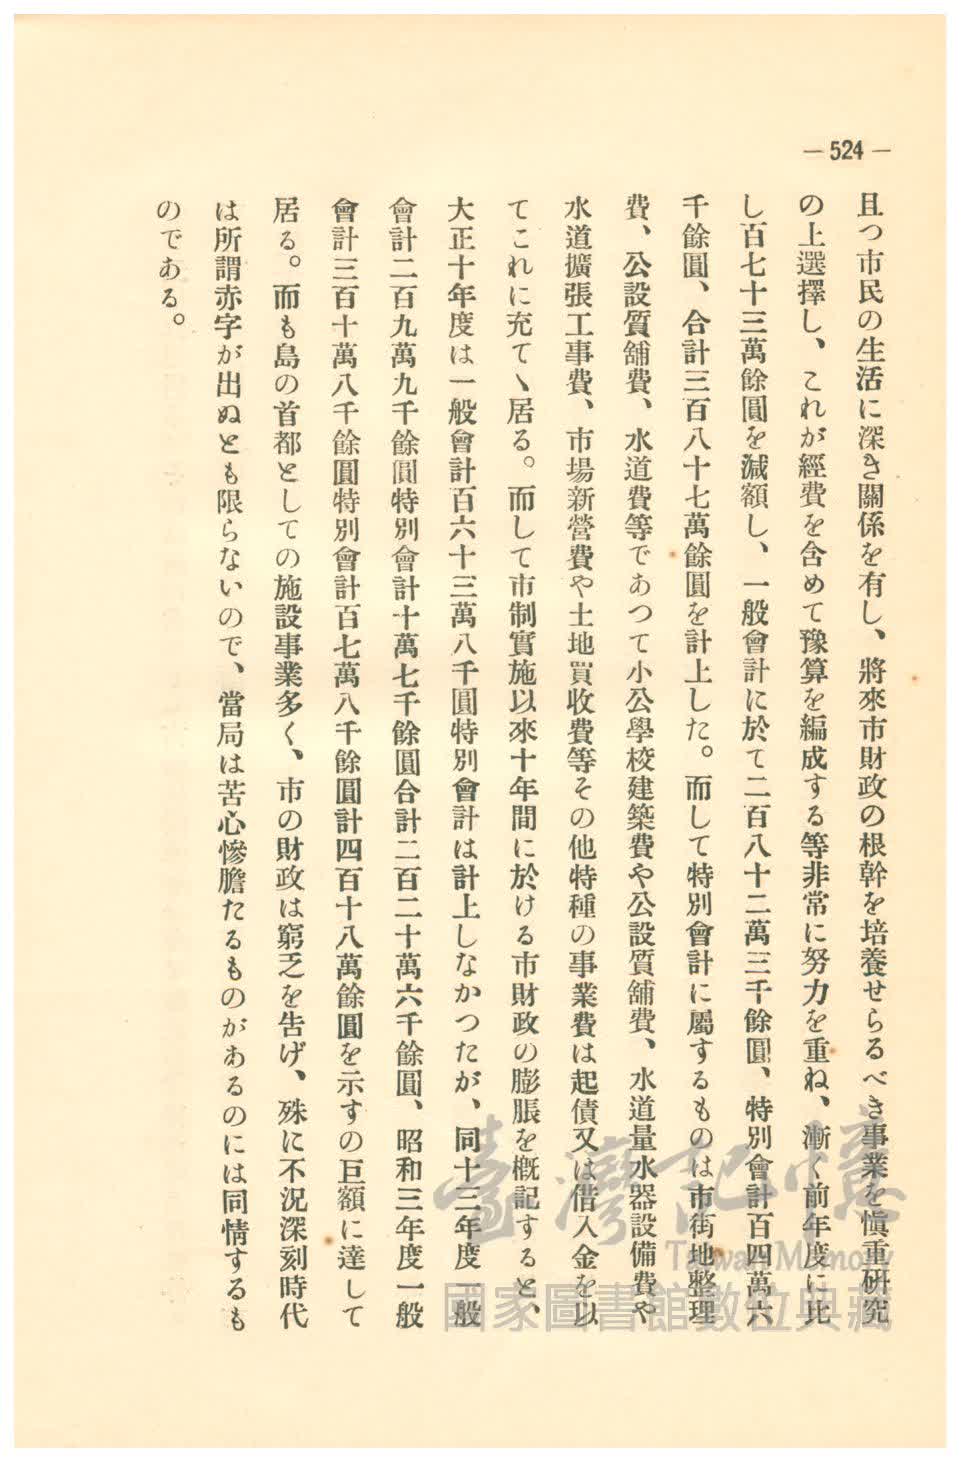 — 524 —
且つ市民の生活に深き關係を有し、將來市財政の根幹を培養せらるべき事業を愼重硏究
の上選擇し、これが經費を含めて豫算を編成する等非常に努力を重ね、漸く前年度に比
し百七十三萬餘圓を減額し、一般會計に於て二百八十二萬三千餘圓、特別會計百四萬六
千餘圓、合計三百八十七萬餘圓を計上した。而して特別會計に屬するものは市街地整理
費、公設質舖費、水道費等であつて小公學校建築費や公設質舖費、水道量水器設備費や
水道擴張工事費、市場新營費や土地買收費等その他特種の事業費は起債又は借入金を以
てこれに充てゝ居る。而して市制實施以來十年間に於ける市財政の膨脹を槪記すると、
大正十年度は一般會計百六十三萬八千圓特別會計は計上しなかつたが、同十三年度一般
會計二百九萬九千餘圓特別會計十萬七千餘圓合計二百二十萬六千餘圓、昭和三年度一般
會計三百十萬八千餘圓特別會計百七萬八千餘圓計四百十八萬餘圓を示すの巨額に達して
居る。而も島の首都としての施設事業多く、市の財政は窮乏を告げ、殊に不況深刻時代
は所謂赤字が出ぬとも限らないので、當局は苦心慘膽たるものがあるのには同情するも
のである。
臺灣記憶
Taiwan Memory
國家圖書館數位典藏